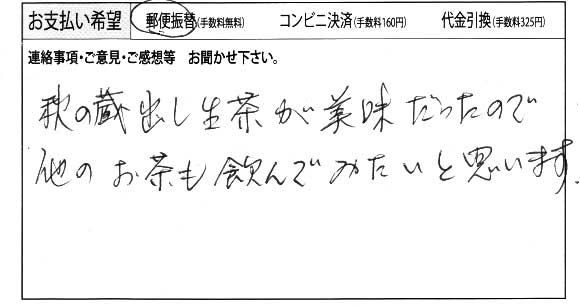 お支払い希望 郵便振替(手数料無料) コンビニ決済(手数料160円) 代金引換(手数料325円)
連絡事項・ご意見・ご感想等 お聞かせ下さい。
秋の蔵出し生茶が美味だったので
他のお茶も飲んでみたいと思います.